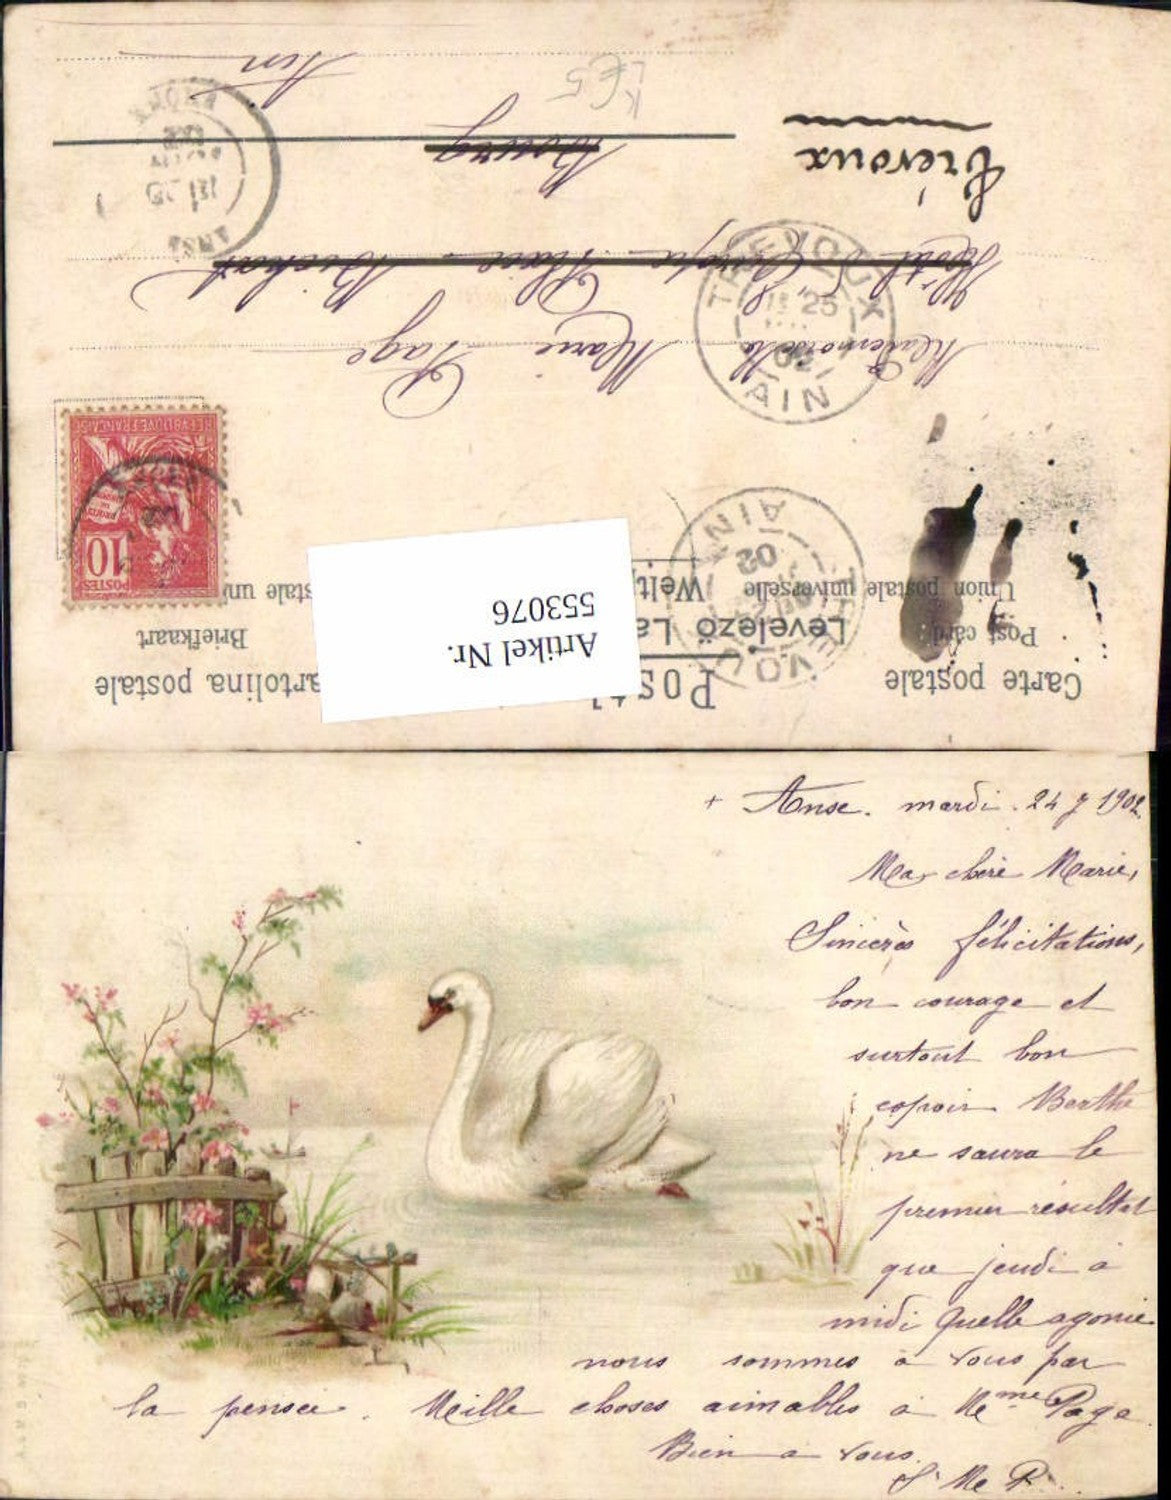 Carte postale
Postal
artolina postale
Post card
Levelező La
Briefkaart
Union postale universelle
Welt
stale un
Artikel Nr.
553076
REPUBLIQUE FRANCAISE
10
POSTES
TREVOUX
02
AIN
TREVOUX
25
02
AIN
Mademoiselle Marie Page
Hôtel d'Europe Place Bichat
Trévoux
Bourg
Ain
ANSE
RHONE
+ Anse. mardi. 24 7 1902
Ma chère Marie,
Sincères félicitations,
bon courage et
surtout bon
espoir Berthe
ne saura le
premier résultat
que jeudi à
midi Quelle agonie
nous sommes à vous par
la pensée. Meille choses aimables à Mme Page
Bien à vous.